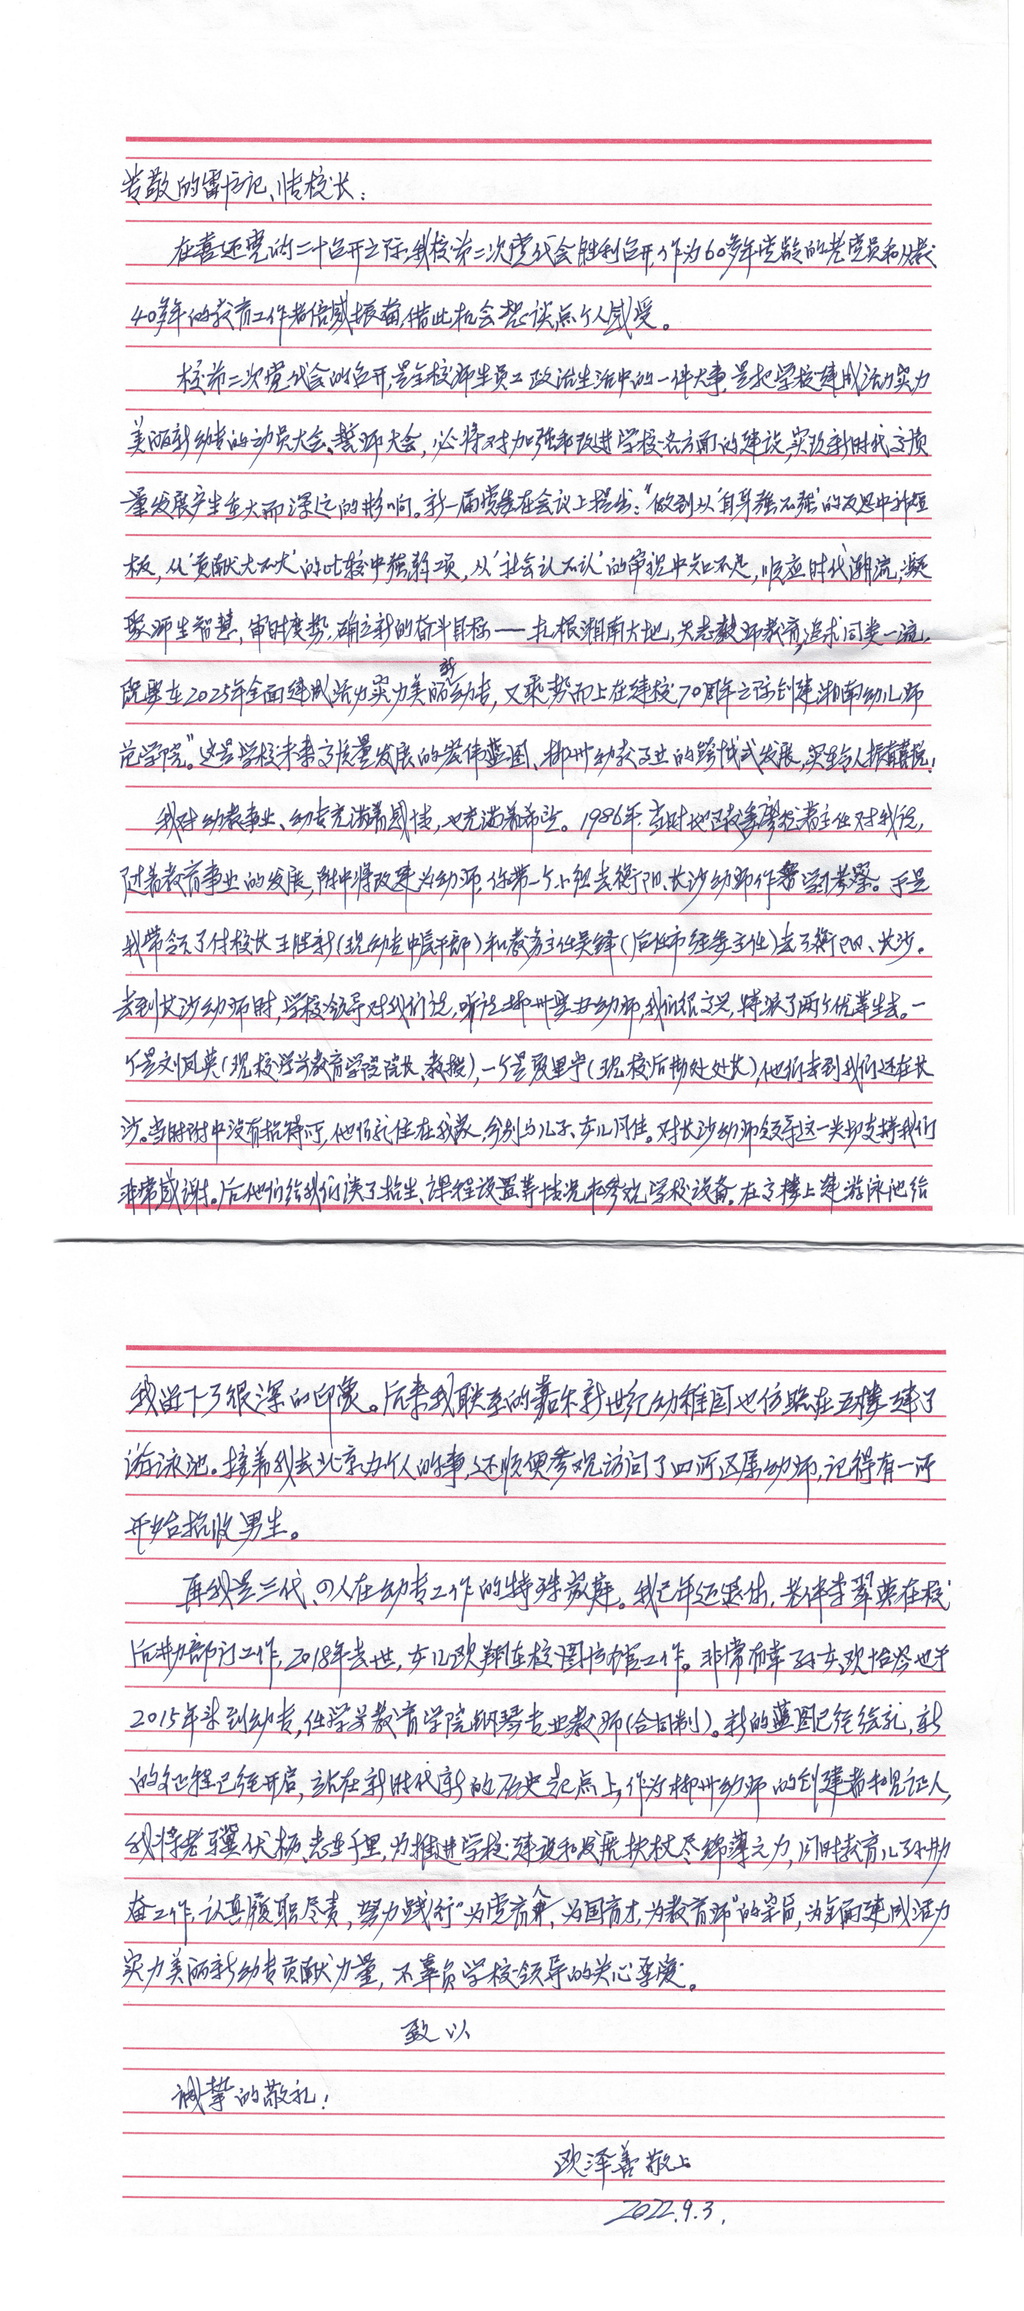 尊敬的雷书记、曹校长：
在喜迎党的二十召开之际，我校第二次党代会胜利召开，作为60多年党龄的老党员和从教
40多年的教育工作者倍感振奋，借此机会想谈点个人感受。
校第二次党代会的召开，是全校师生员工政治生活中的一件大事，是把学校建成活力实力
美丽新幼专的动员大会、誓师大会，必将对加强和改进学校各方面的建设，实改新时代高质
量发展产生重大而深远的影响。新一届党委在会议上提出：“做到从‘自身强不强’的反思中补短
板，从‘贡献大不大’的比较中强弱项，从‘社会认不认’的审视中知不足，顺应时代潮流，凝
聚师生智慧，审时度势，确立新的奋斗目标——扎根湘南大地，矢志教师教育，追求同类一流，
既要在2025年全面建成活力实力美丽新幼专，又乘势而上在建校70周年之际创建湘南幼儿师
范学院”。这是学校未来高质量发展的宏伟蓝图、郴州幼教事业的跨越式发展，实在令人振奋喜悦！
我对幼教事业、幼专充满着感情，也充满着希望。1986年，当时地区教委主任对我说，
随着教育事业的发展，附中将改建为幼师，你带一个小组去衡阳、长沙幼师作学习考察。于是
我带领了付校长王胜新（现幼专中层干部）和教务主任吴锋（后任市经委主任）去了衡阳、长沙。
去到长沙幼师时，学校领导对我们说，听说郴州要办幼师，我们很高兴，特派了两个优等生去。一
个是刘凤英（现校学前教育学院院长、教授），一个是夏里宁（现校后勤处处长），他们来到我们还在长
沙。当时附中没有招待所，他们就住在我家，分别与儿子、女儿同住。对长沙幼师领导这一关切支持我们
非常感谢。后他们给我们谈了招生、课程设置等情况和参观学校设备。在高楼上建游泳池给
我留下了很深的印象。后来我联系的嘉禾新世纪幼稚园也仿照在五楼建了
游泳池。接着我去北京办个人的事，还顺便参观访问了四所区属幼师，记得有一所
开始招收男生。
再我是三代、四人在幼专工作的特殊家庭。我已年迈退休，老伴李翠英在校
后勤部门工作，2018年去世，女儿欧翔在校图书馆工作。非常有幸孙女欧怡岑也于
2015年来到幼专，任学前教育学院钢琴专业教师（合同制）。新的蓝图已经绘就，新
的征程已经开启，站在新时代新的历史起点上，作为郴州幼师的创建者和见证人，
我将老骥伏枥、志在千里，为推进学校建设和发展扶杖尽绵薄之力，同时教育儿孙勤
奋工作，认真履职尽责，努力践行“为党育人，为国育才，为教育师”的宗旨，为全面建成活力
实力美丽新幼专贡献力量，不辜负学校领导的关心厚爱。
致以
诚挚的敬礼！
欧泽善敬上
2022.9.3.